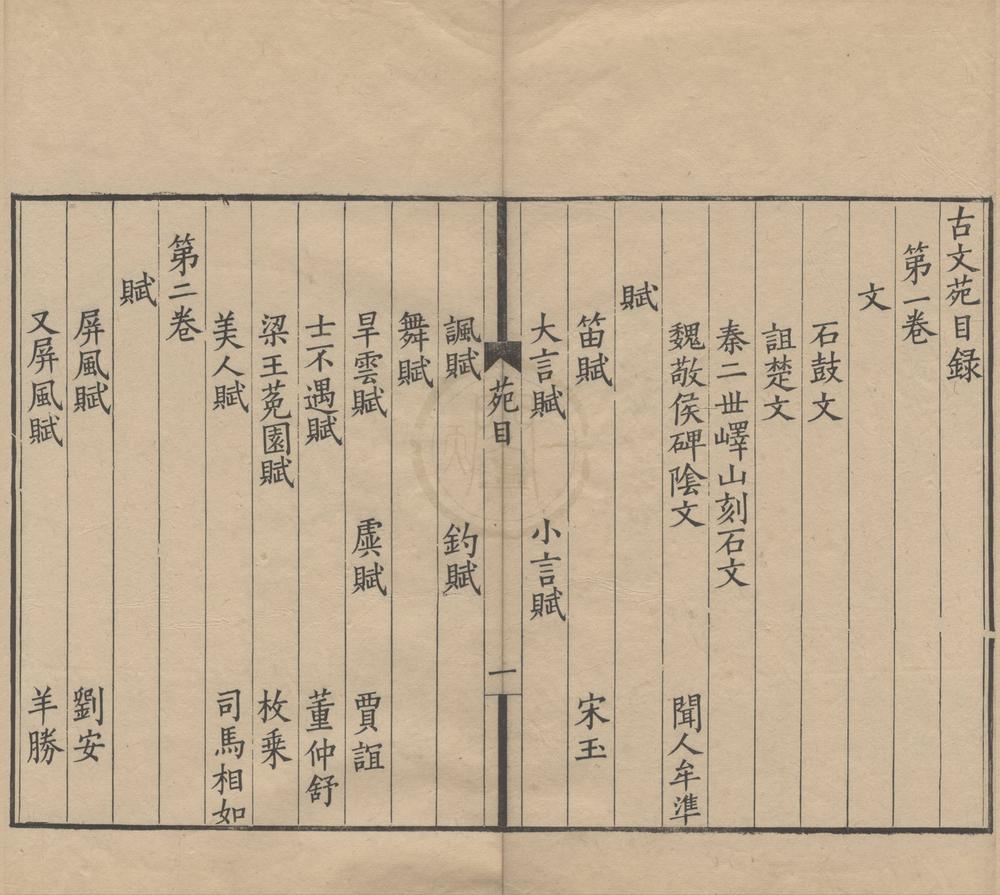 古文苑目録
第一卷
文
石鼓文
詛楚文
秦二世嶧山刻石文
魏敬侯碑陰文 聞人牟準
賦
笛賦 宋玉
大言賦 小言賦
苑目 一
諷賦 釣賦
舞賦
旱雲賦 虡賦 賈誼
士不遇賦 董仲舒
梁王菟園賦 枚乗
美人賦 司馬相如
第二卷
賦
屏風賦 劉安
又屏風賦 羊勝